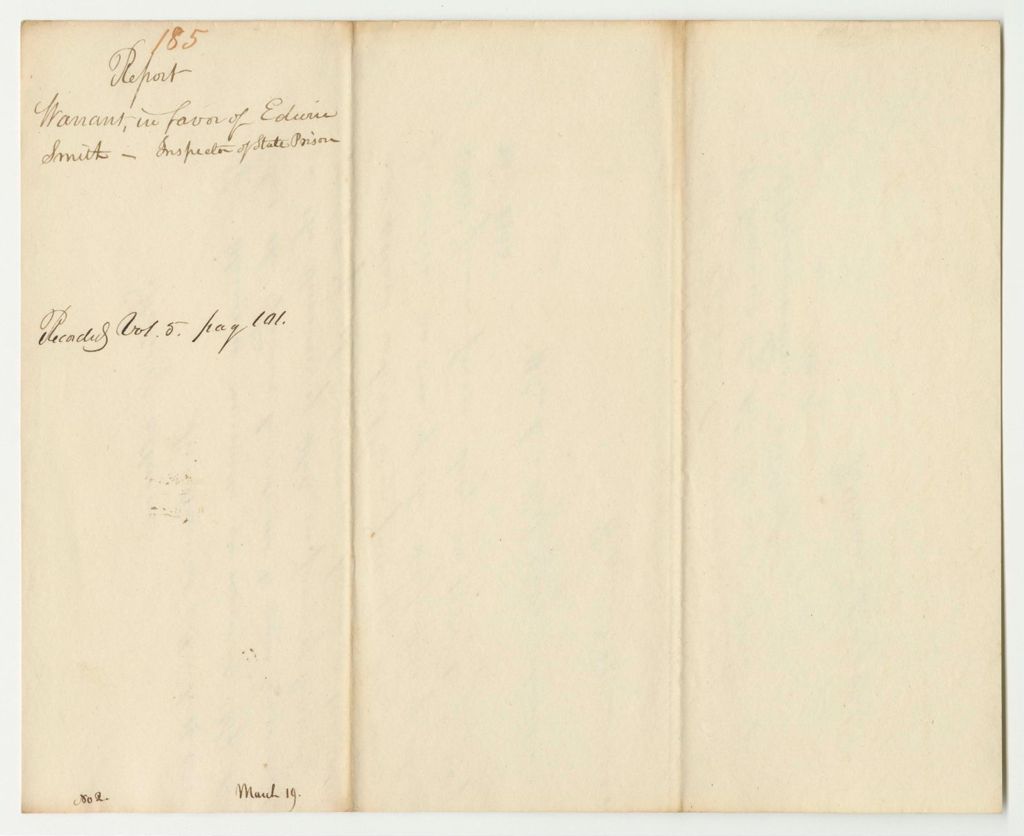 185
Report
Warrant, in favor of Edwin
Smith – Inspector of State Prison
Recorded Vol. 5. pag 191.
No 2.
March 19.